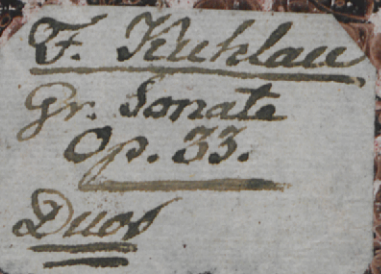 F. Kuhlau
Gr. Sonate
Op. 33.
Duos